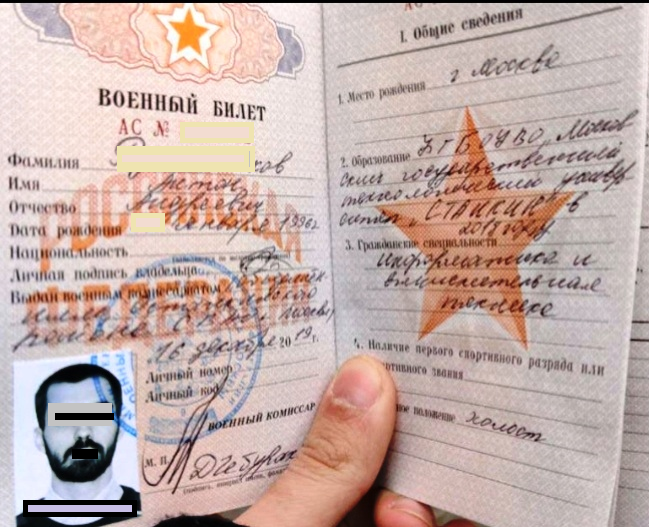 ВОЕННЫЙ БИЛЕТ
АС №
Фамилия
Имя Антон
Отчество Андреевич
Дата рождения января 1996г
Национальность
Личная подпись владельца
Выдан военным комиссариатом
района
16 декабря 2019 г.
Личный номер
Личный код
ВОЕННЫЙ КОМИССАР
М. П.
I. Общие сведения
1. Место рождения г Москва
2. Образование ФГБОУ ВО „Москов
ский государственный
технологический универ
ситет „СТАНКИН" в
2018 году
3. Гражданские специальности
информатика и
вычислительная
техника
4. Наличие первого спортивного разряда или
ортивного звания
ное положение холост
РОССИЙСКАЯ